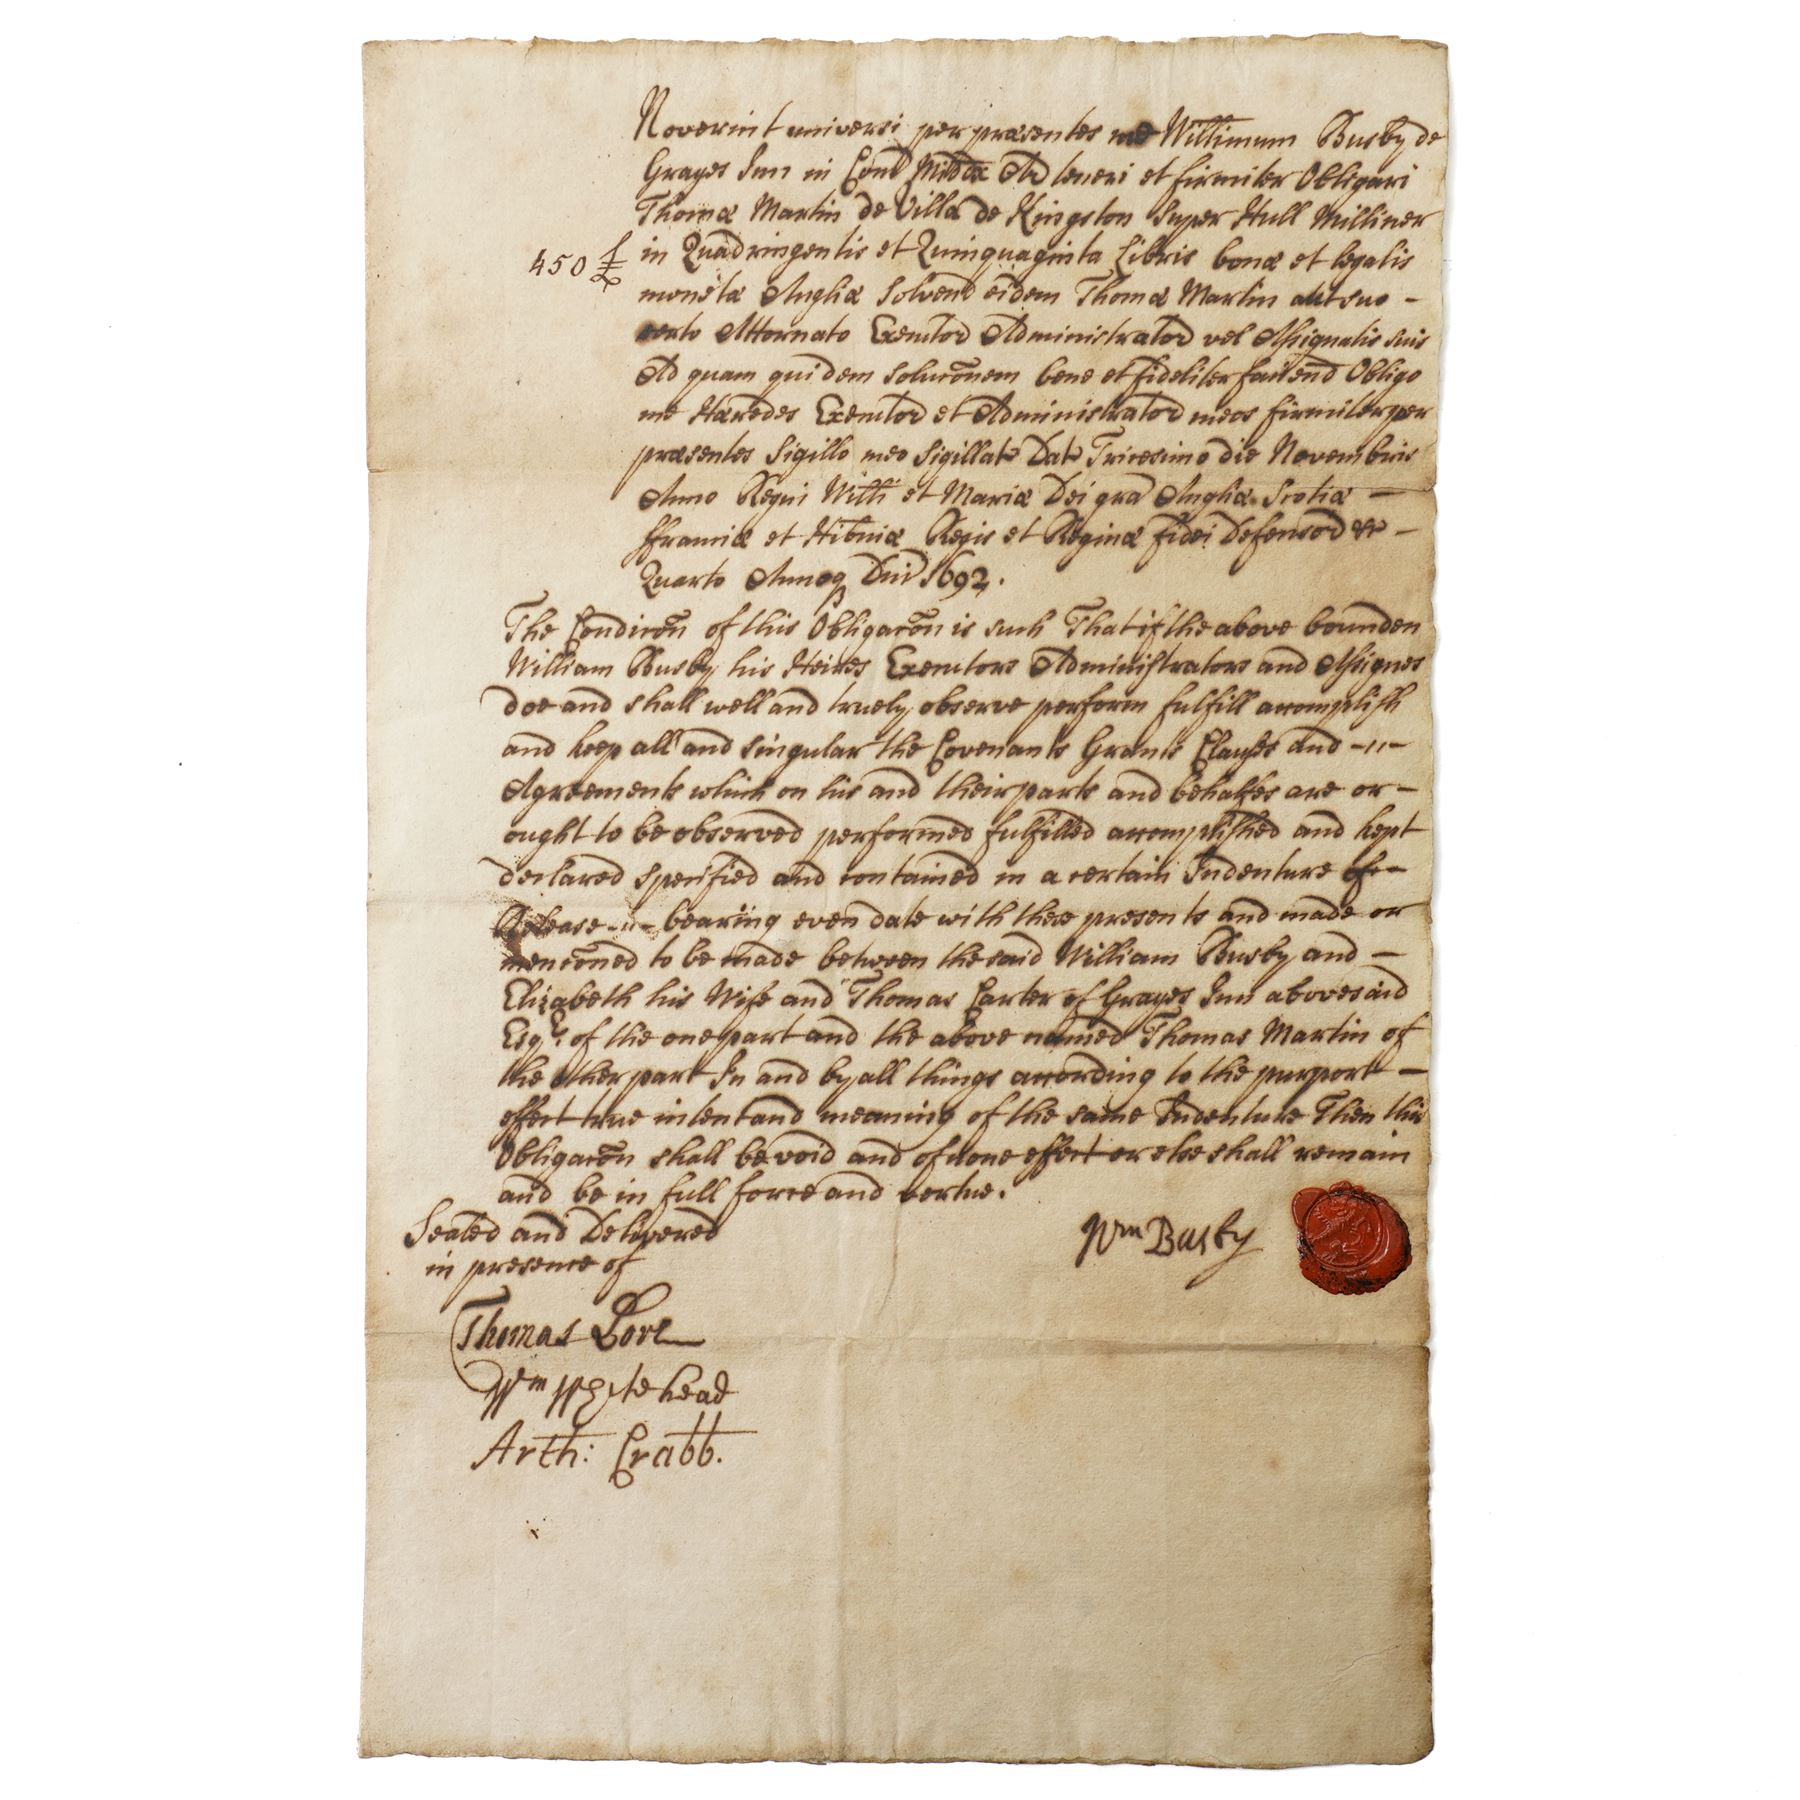 Noverint universi per præsentes me Willimum Busby de
Grayes Inn in Com Middx Ar teneri et firmiter Obligari
Thomæ Martin de Villa de Kingston super Hull Milliner
450 £ in Quadringentis et Quinquaginta Libris bonæ et legalis
monetæ Angliæ Solvend eidem Thomæ Martin aut suo -
certo Attornato Executor Administrator vel Assignatis suis
Ad quam quidem solucõnem bene et fideliter faciend Obligo
me Hæredes Executor et Administrator meos firmiter per
præsentes Sigillo meo Sigillat Dat Tricesimo die Novembris
Anno Regni Willi et Mariæ Dei gra Angliæ Scotiæ -
ffranciæ et Hibniæ Regis et Reginæ fidei Defensor &c -
Quarto Annoq Dni 1692.
The Condicõn of this Obligacõn is such That if the above bounden
William Busby his Heires Executors Administrators and Assignes
doe and shall well and truely observe perform fulfill accomplish
and keep all and singular the Covenants Grants Clauses and -"-
Agreements which on his and their parts and behalfes are or -
ought to be observed performed fulfilled accomplished and kept
declared specified and contained in a certain Indenture of -
Release -"- bearing even date with these presents and made or
mencõned to be made between the said William Busby and -
Elizabeth his Wife and Thomas Carter of Grayes Inn abovesaid
Esqr. of the one part and the above named Thomas Martin of
the other part In and by all things according to the purport -
effect true intent and meaning of the same Indenture Then this
Obligacõn shall be void and of none effect or else shall remain
and be in full force and vertue.
Sealed and Delivered
in presence of
Wm Busby
Thomas Love
Wm Whitehead
Arth: Crabb.